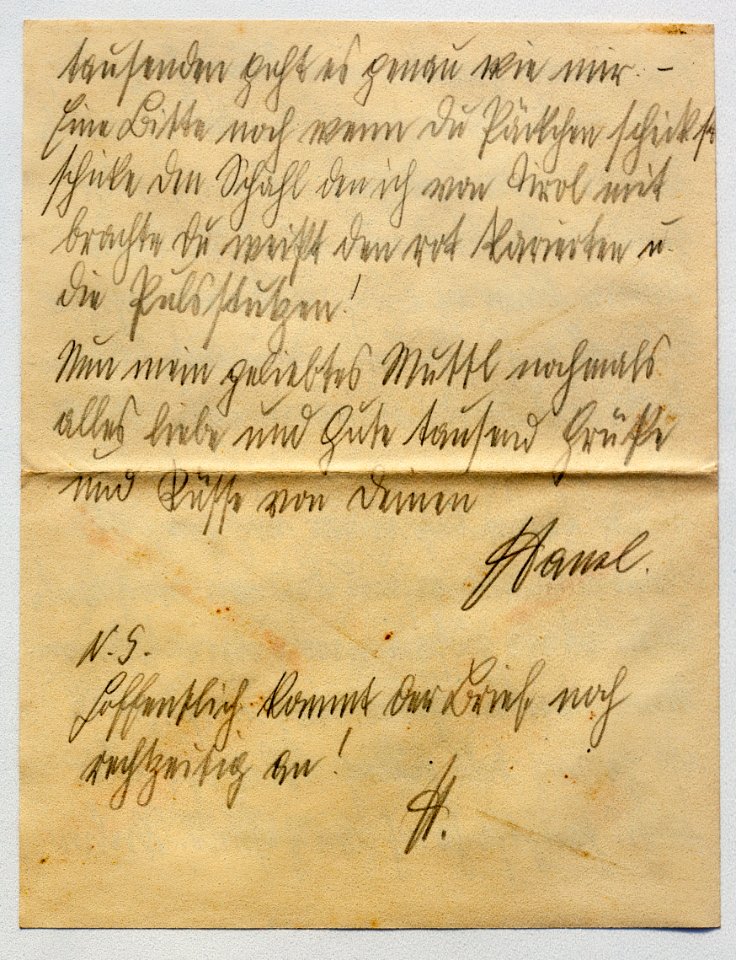 tausenden geht es genau wie mir. –
Eine Bitte noch wenn du Päckchen schickst
schicke den Schahl den ich von Tirol mit
brachte du weißt den rot karierten u.
die Pulsstutzen!
Nun mein geliebtes Muttl nochmals
alles liebe und Gute tausend Grüße
und Küsse von Deinen
Hansl.
N.S.
Hoffentlich kommt der Brief noch
rechtzeitig an!
H.